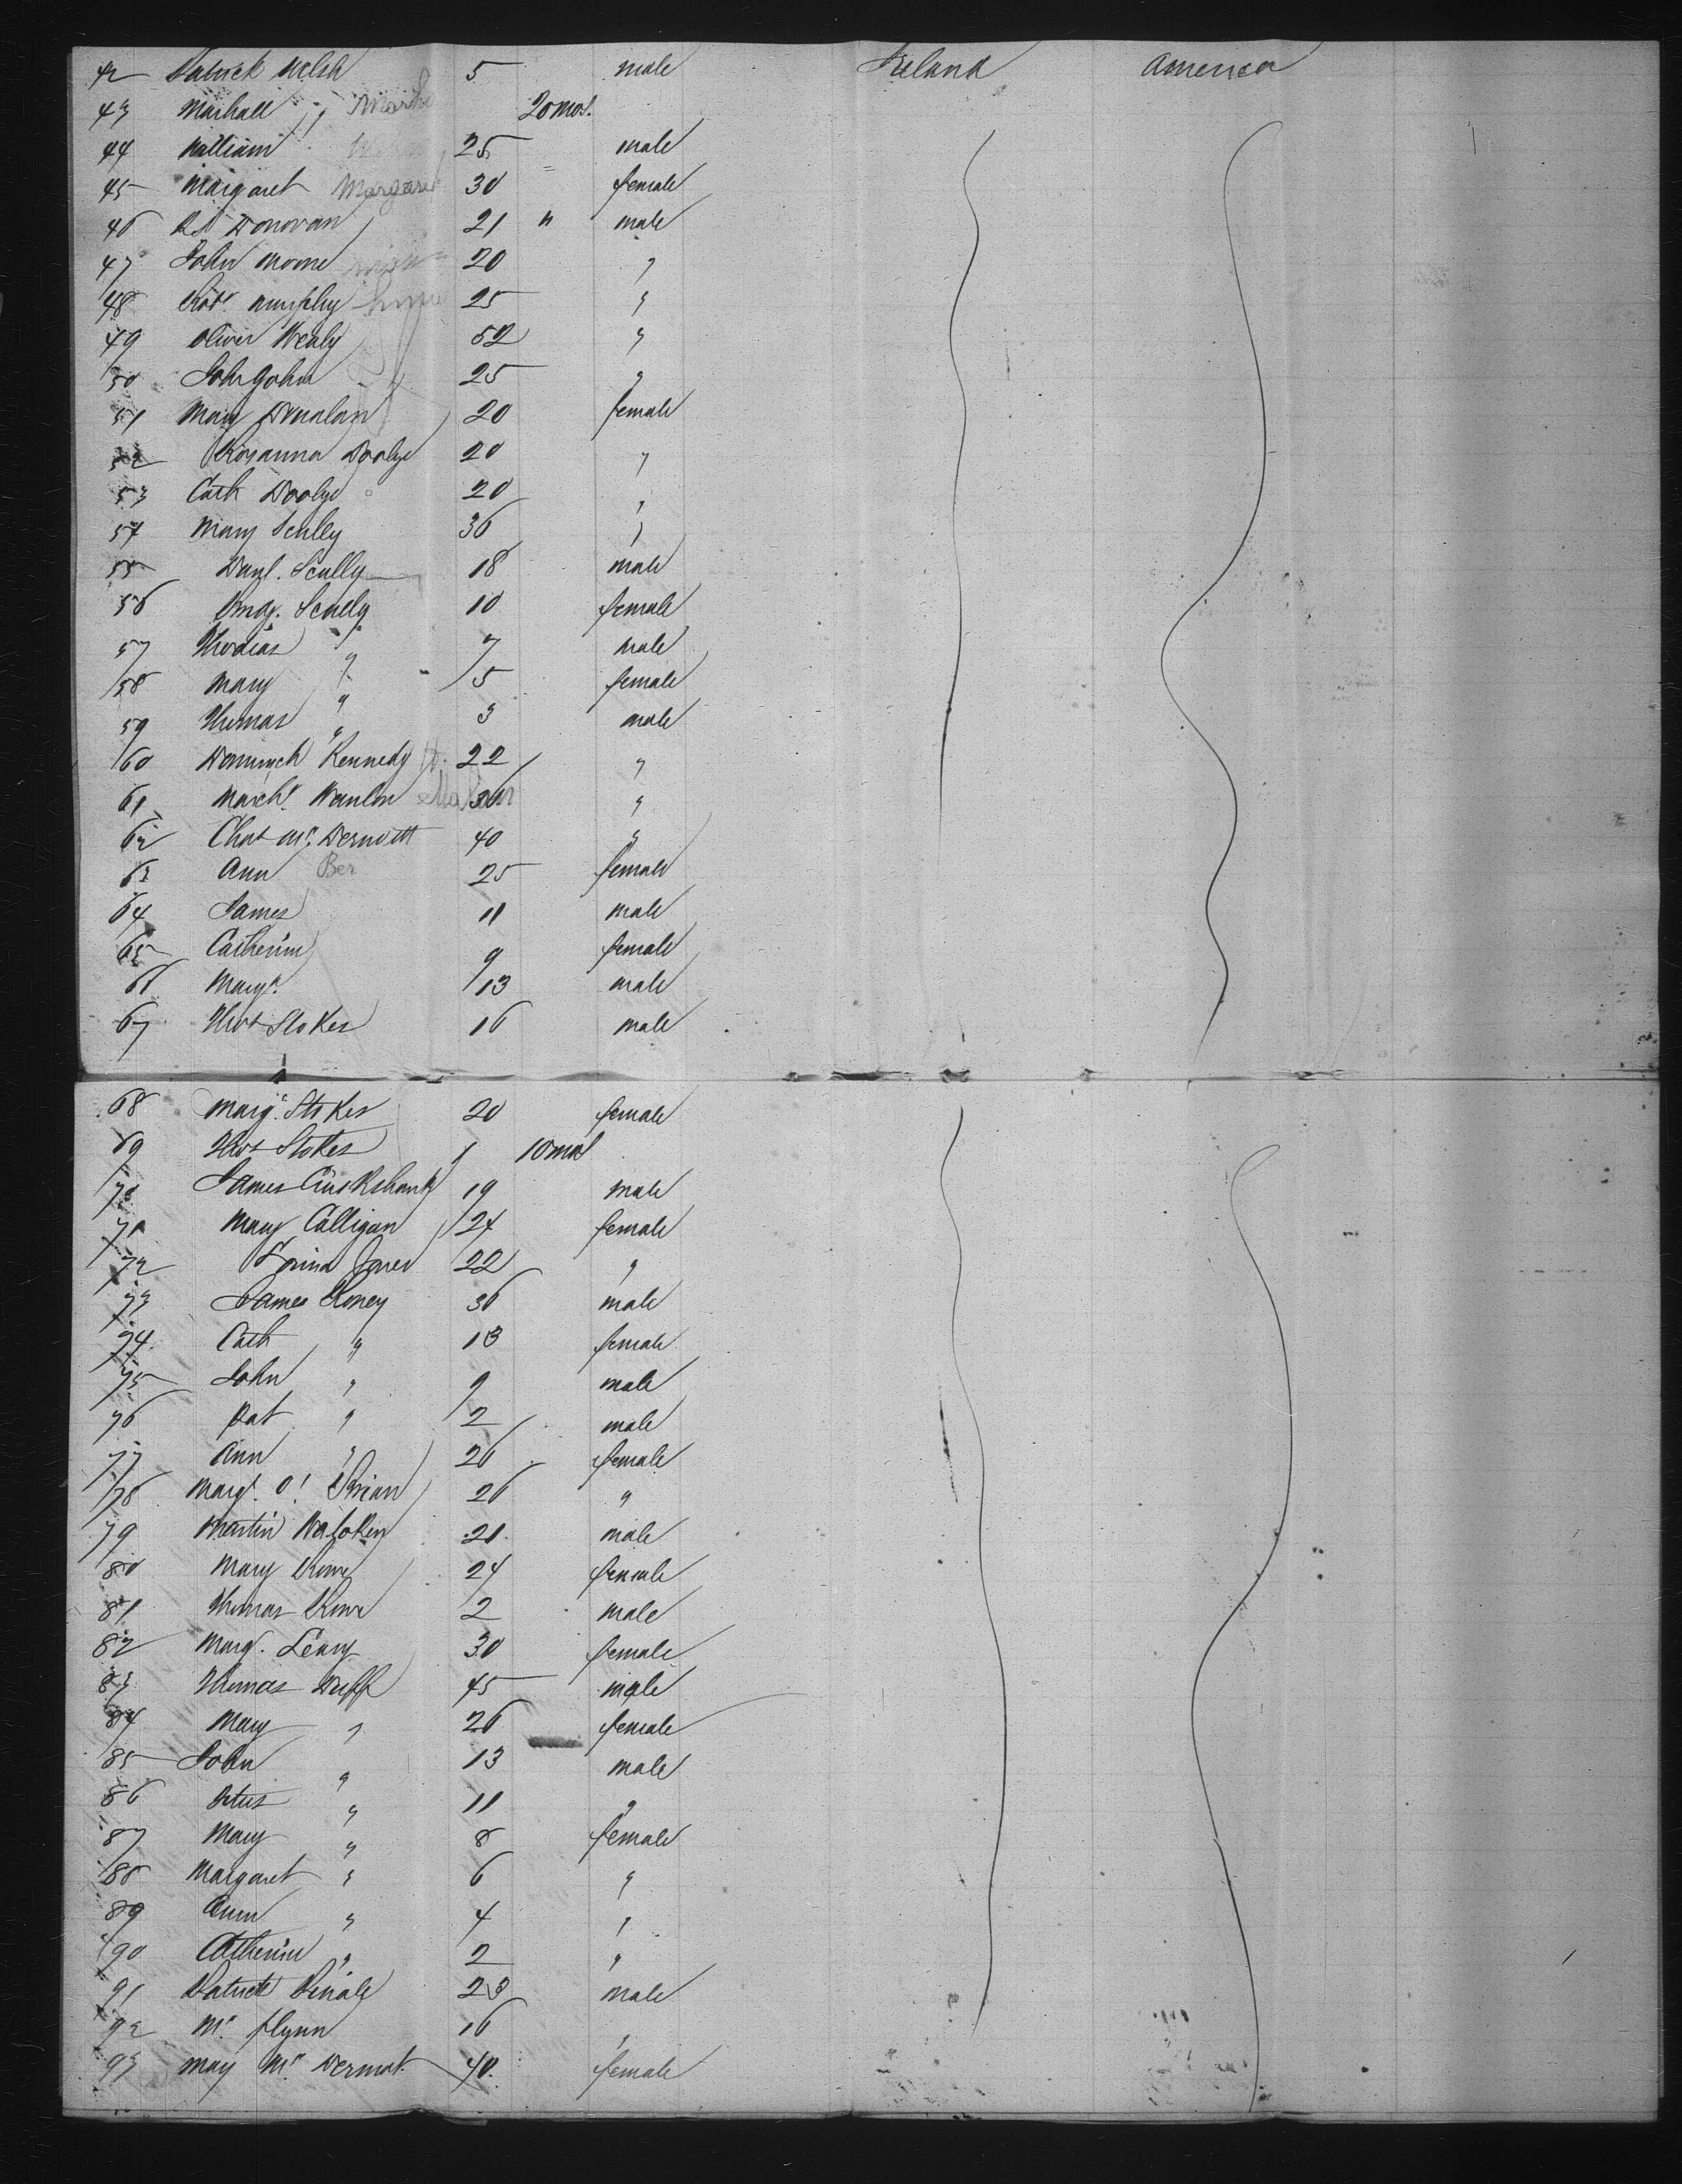 42 Patrick Welsh 5 male Ireland America
43 Marhall " 20 mos.
44 William 25 male
45 Margaret Margaret 30 female
46 Donovan 21 " male
47 John Moone 20 "
48 Robt. Murphy 25 "
49 Oliver Healy 52 "
50 John 25 "
51 Mary 20 female
52 Rosanna Doolye 20 "
53 Cath Doolye 20 "
54 Mary Scully 36 "
55 Danl. Scully 18 male
56 Scully 10 female
57 " 7 male
58 Mary " 5 female
59 Thomas " 3 male
60 Kennedy 22 "
61 36 "
62 Chas Mc. Dermott 40 "
63 Ann Ber 25 female
64 James 11 male
65 Catherine 9 female
66 13 male
67 Thos Stokes 16 male
68 Margt. Stokes 20 female
69 Thos Stokes 1 10 mos
70 James 19 male
71 Mary Calligan 24 female
72 Jones 22 "
73 James Roney 36 male
74. Cath " 13 female
75 John " 9 male
76 Pat " 2 male
77 Ann " 26 female
78 Margt. O' Brian 26 "
79 Martin 21. male
80 Mary 24 female
81 Thomas 2 male
82 Margt. Leary 30 female
83 Thomas Duff 45 male
84 Mary " 26 female
85 John " 13 male
86 " 11 "
87 Mary " 8 female
88 Margaret " 6 "
89 Ann " 4 "
90 Catherine " 2 "
91 Patrick 23 male
92 Mc. Flynn 16 "
93 May Mc. Dermot 40. female